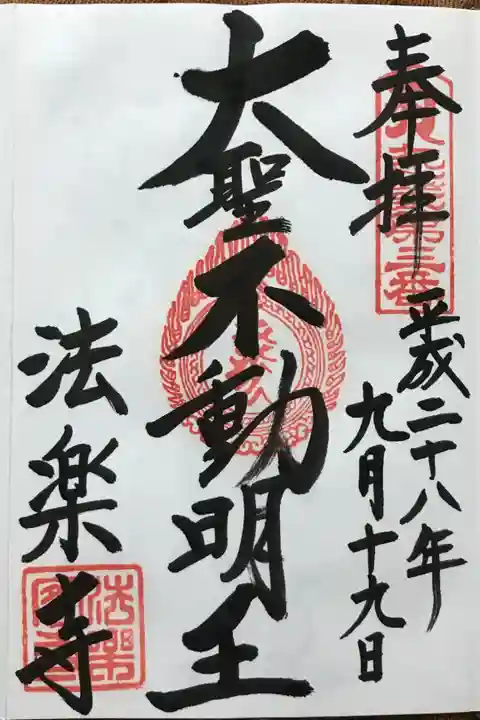 奉拝
平成二十八年
九月十九日
大聖不動明王
法楽寺